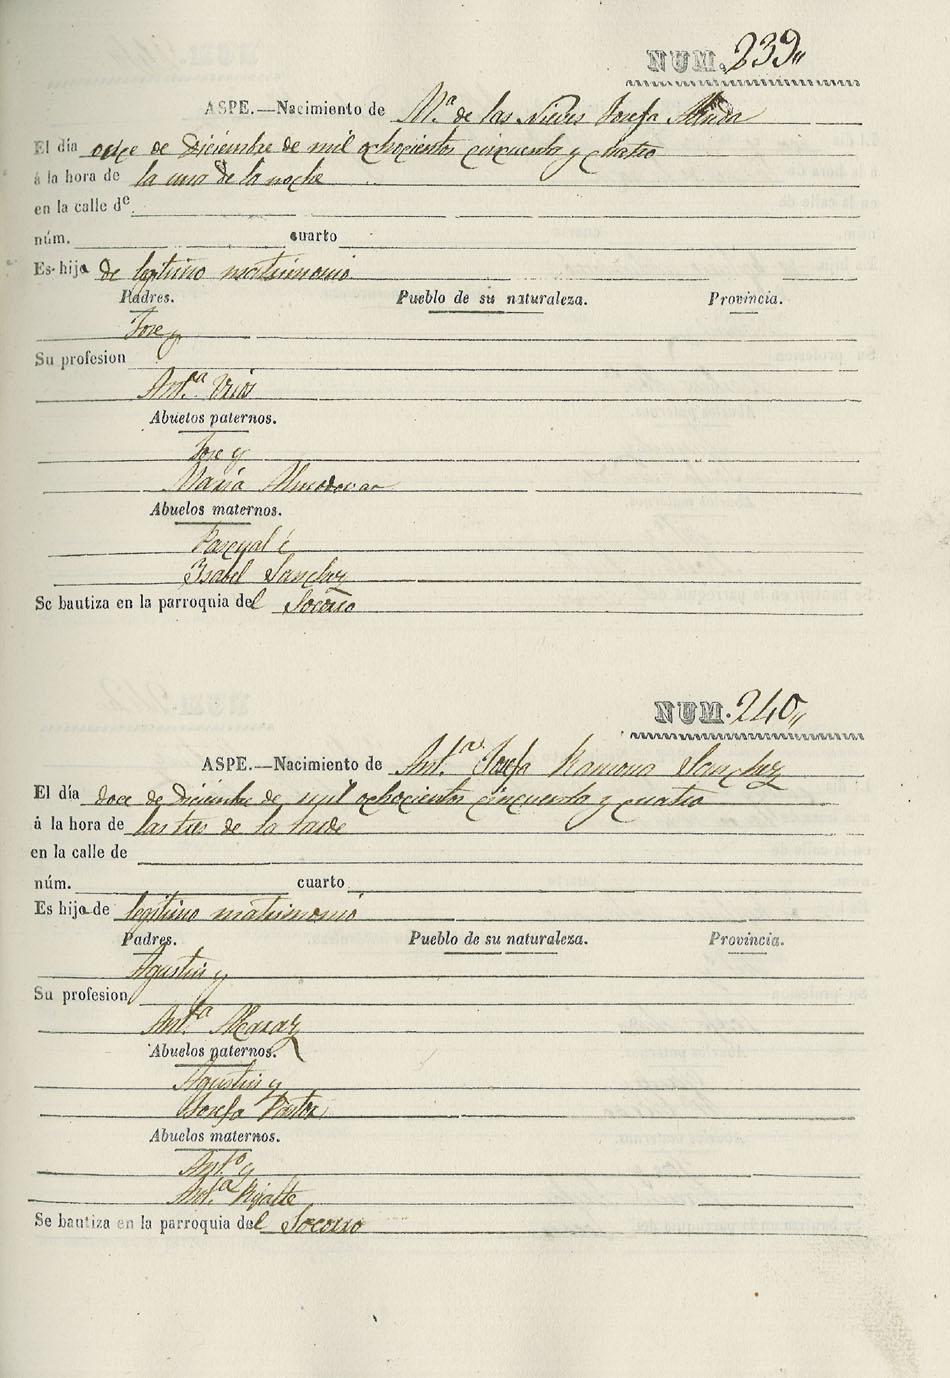 NUM. 239
ASPE.—Nacimiento de Mª de las Nieves Josefa
El día once de Diciembre de mil ochocientos cincuenta y cuatro
á la hora de la una de la noche
en la calle de
núm. cuarto
Es hija de legitimo matrimonio
Padres. Pueblo de su naturaleza. Provincia.
Jose y
Su profesion
Ant.ª
Abuelos paternos.
Jose y
Maria Almodovar
Abuelos maternos.
Pascual é
Isabel Sanchez
Se bautiza en la parroquia del Socorro
NUM. 240
ASPE.—Nacimiento de Ant.ª Josefa Ramona Sanchez
El día doce de Diciembre de mil ochocientos cincuenta y cuatro
á la hora de las tres de la tarde
en la calle de
núm. cuarto
Es hija de legitimo matrimonio
Padres. Pueblo de su naturaleza. Provincia.
Agustin y
Su profesion
Ant.ª Alcaraz
Abuelos paternos.
Agustin y
Josefa Pastor
Abuelos maternos.
Ant.º y
Ant.ª
Se bautiza en la parroquia del Socorro